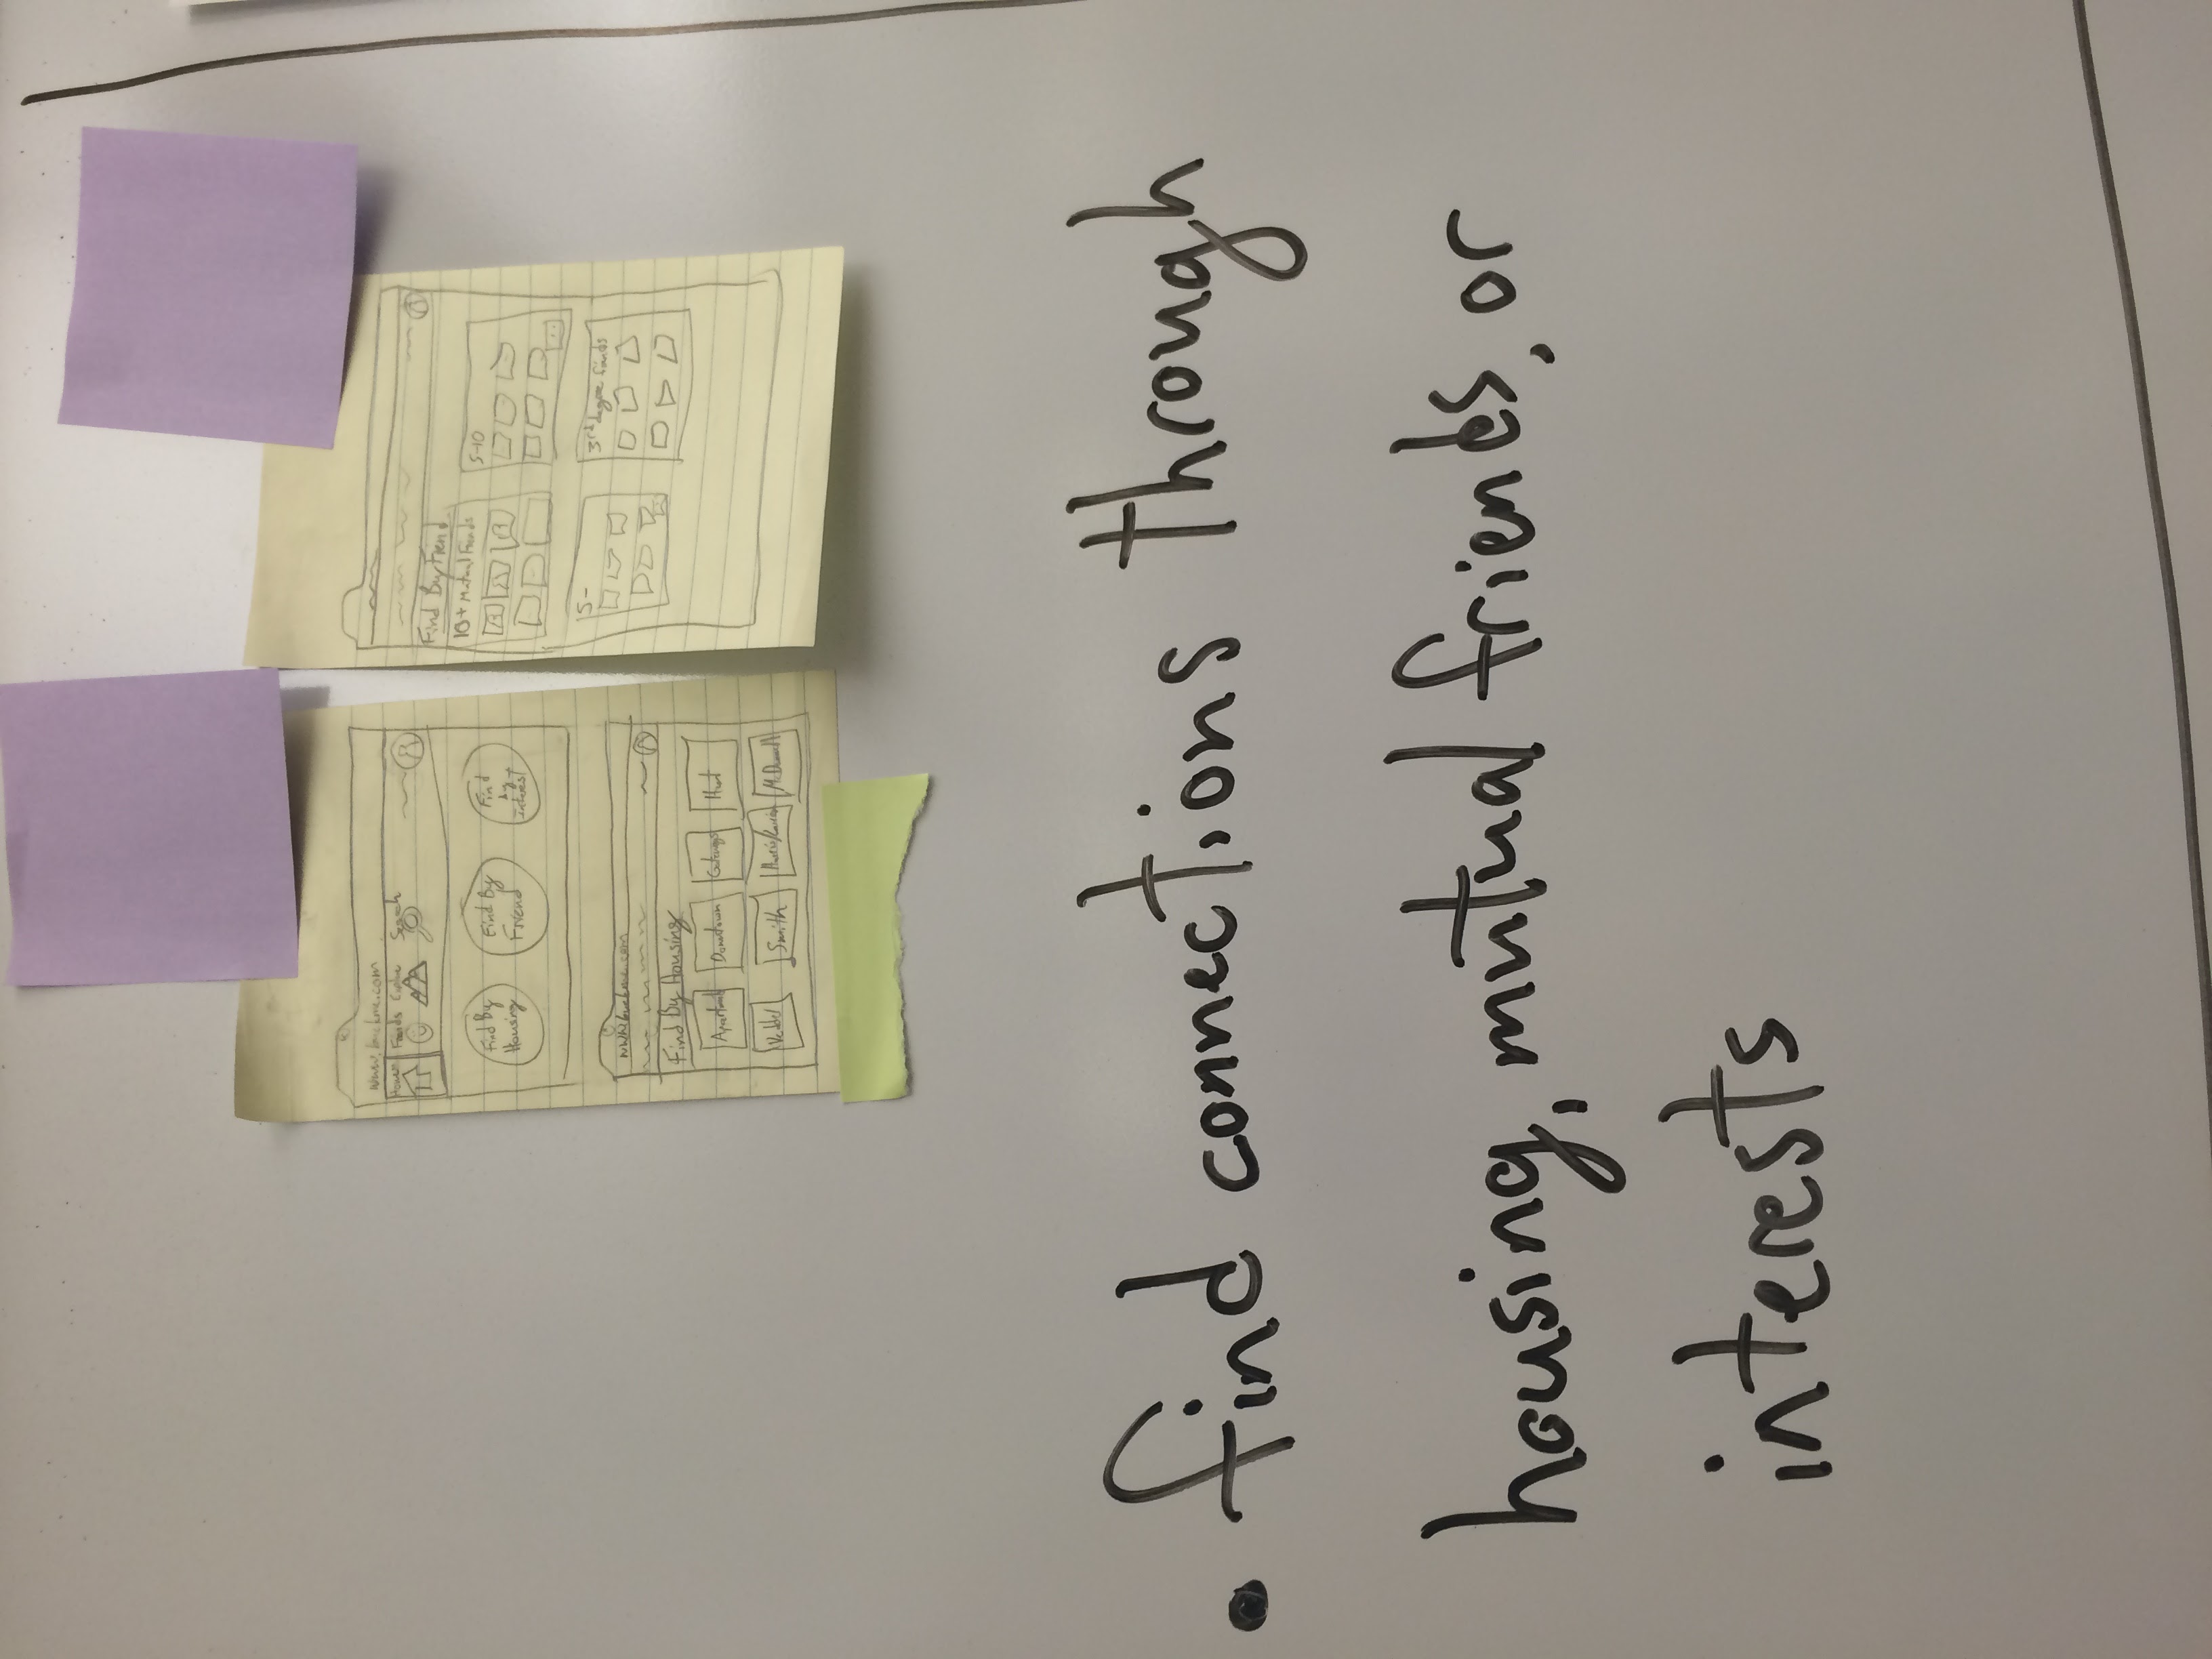 Home
Friends
Explore
Search
Find By
Housing
Find By
Friend
Find
by
interest
Find By Housing
Downtown
Gateways
Hunt
Smith
Find By Friend
10+ Mutual Friends
5-10
5-
3rd degree friends
• find connections through
housing, mutual friends, or
interests